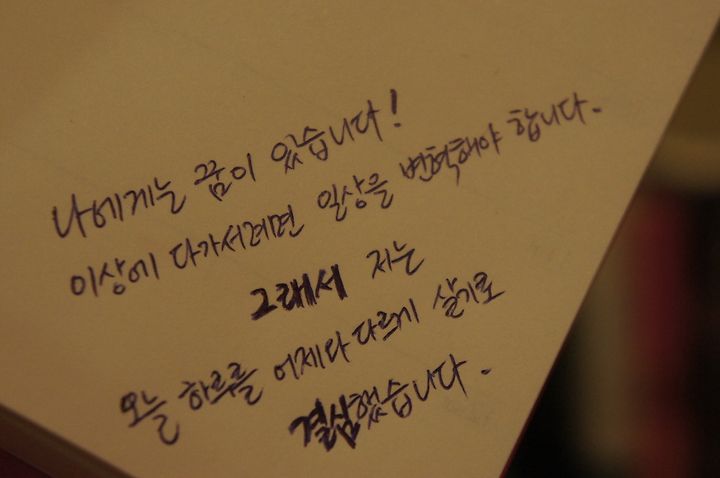 나에게는 꿈이 있습니다!
이상에 다가서려면 일상을 변혁해야 합니다.
그래서 저는
오늘 하루를 어제와 다르게 살기로
결심했습니다.